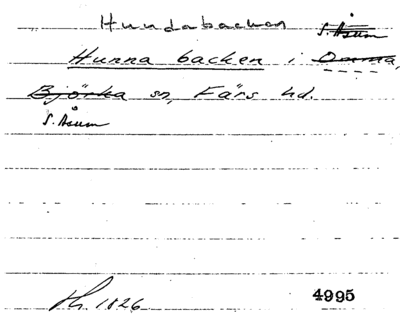 Hundabacken
S. Åsum
Hunna backen i Ooma,
Björka sn, Färs hd.
S. Åsum
1826
4995